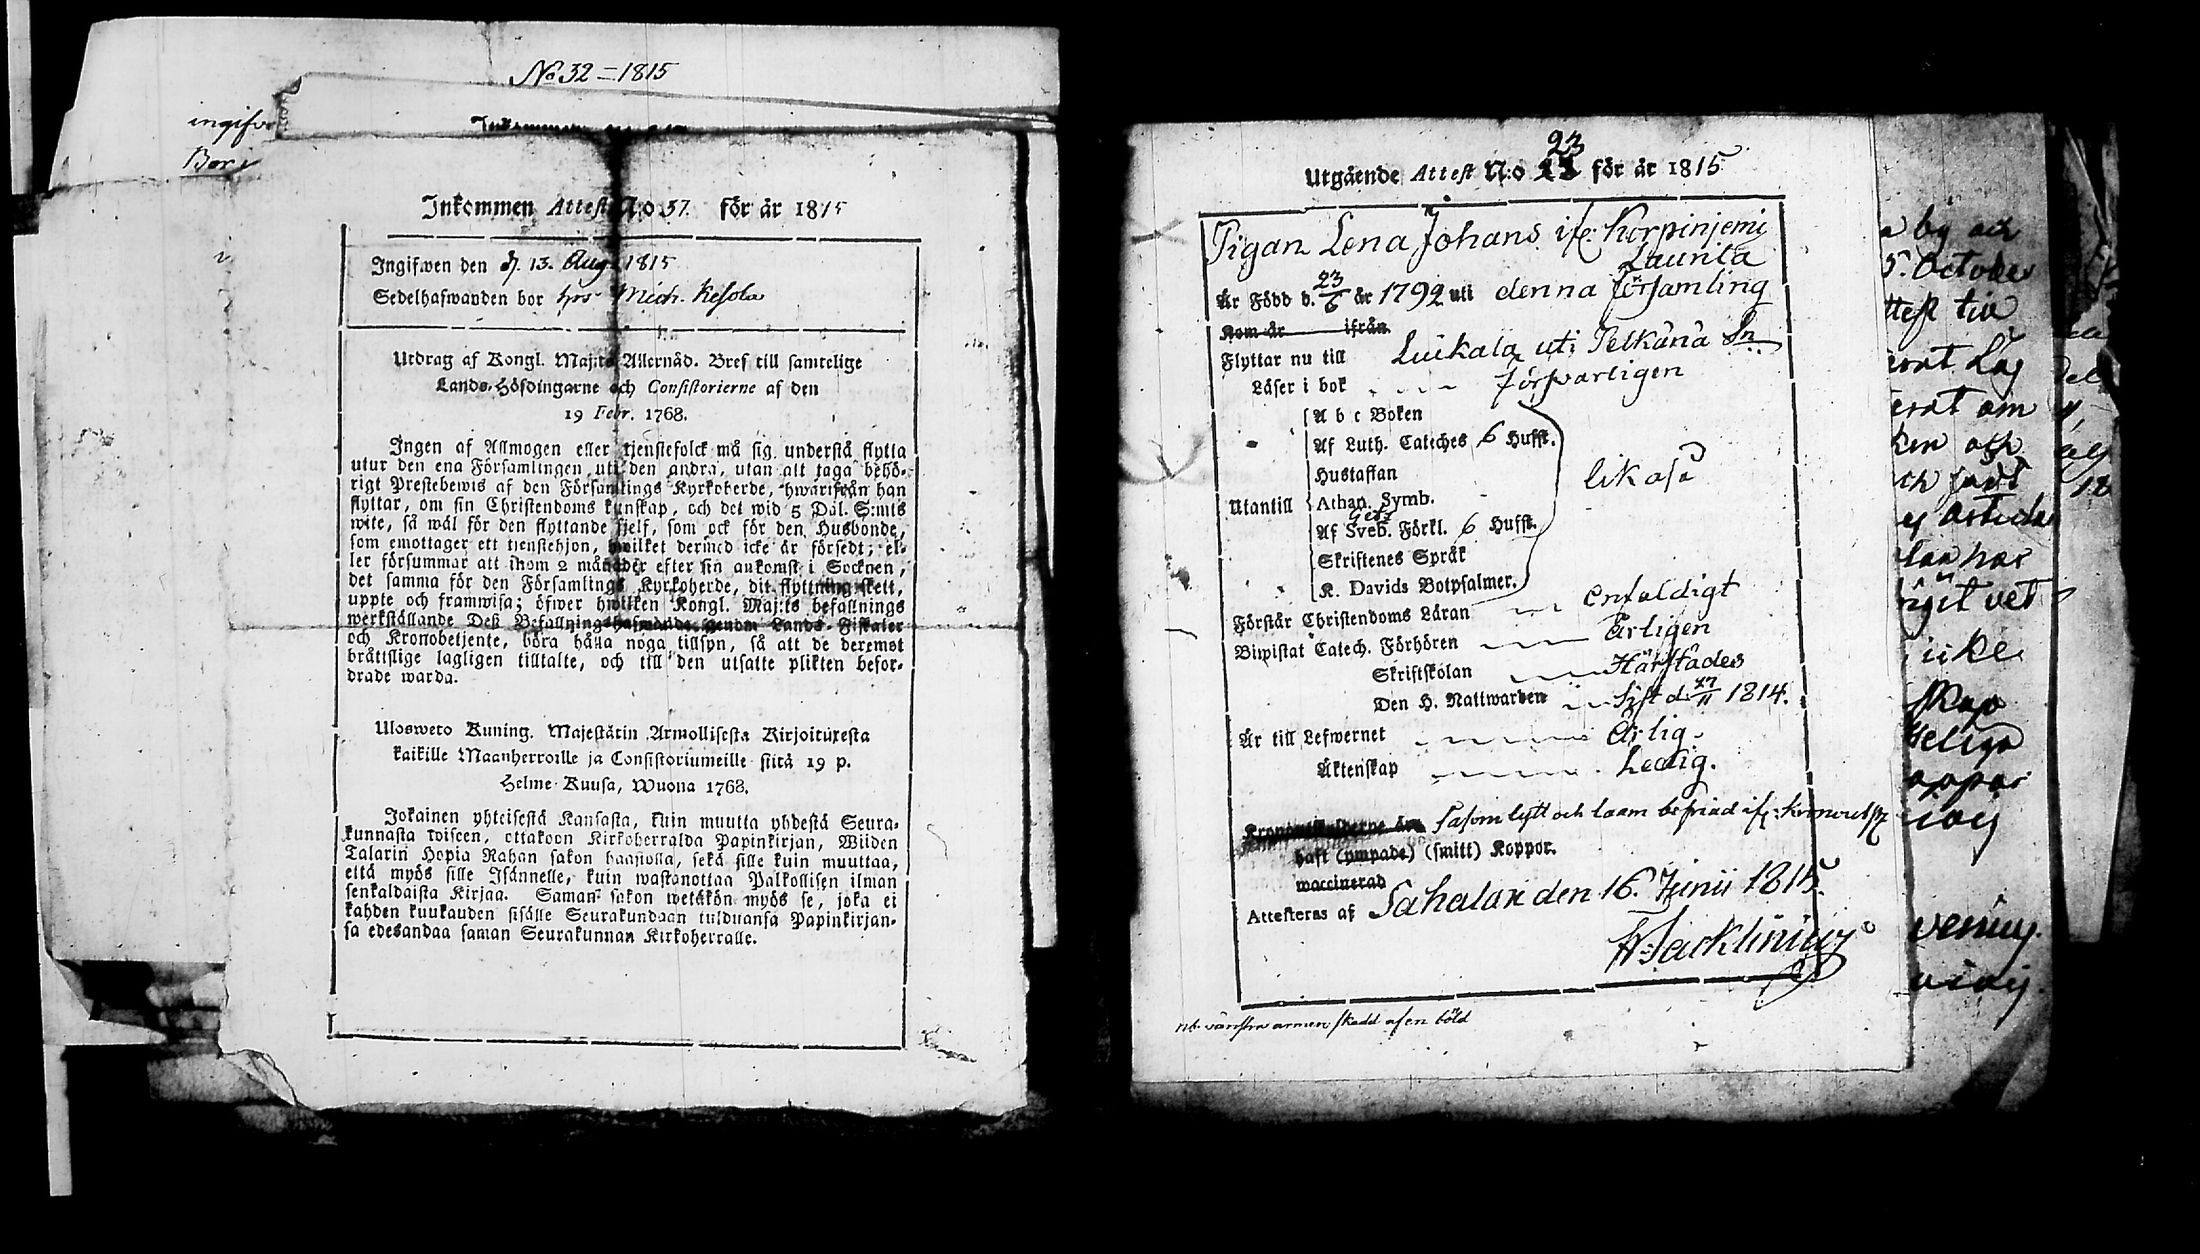 No 32 = 1815
ingifv
Bor
Inkommen Attest N:o 37. för år 1815
Ingifwen den d. 13. Aug. 1815
Sedelhafwanden bor hos Mich. Kesola
Utdrag af Kongl. Maj:ts Allernåd. Bref till samtelige
Lands-Höfdingarne och Consistorierne af den
19 Febr. 1768.
Ingen af Allmogen eller tjenstefolck må sig understå flytta
utur den ena Församlingen uti den andra, utan att taga behö-
rigt Prestebewis af den Församlings Kyrkoherde, hwarifrån han
flyttar, om sin Christendoms kunskap, och det wid 5 Dal. S:mts
wite, så wäl för den flyttande sjelf, som ock för den Husbonde,
som emottager ett tjenstehjon, hwilket dermed icke är försedt; el-
ler försummar att inom 2 månader efter sin ankomst i Socknen,
det samma för den Församlings Kyrkoherde, dit flyttning skett,
uppte och framwisa; öfwer hwilken Kongl. Maj:ts befallnings
werkställande Deß Befallningshafwande genom Lands-Fiskaler
och Kronobetjente, böra hålla noga tillsyn, så att de deremot
bråttslige lagligen tilltalte, och till den utsatte plikten befor-
drade warda.
Ulosweto Kuning. Majestätin Armollisesta Kirjoituxesta
kaikille Maanherroille ja Consistoriumeille siitä 19 p.
Helme-Kuusa, Wuona 1768.
Jokainen yhteisestä Kansasta, kuin muutta yhdestä Seura-
kunnasta toiseen, ottakoon Kirkoherralda Papinkirjan, Wiiden
Talarin Hopia Rahan sakon haastolla, sekä sille kuin muuttaa,
että myös sille Isännelle, kuin wastanottaa Palkollisen ilman
senkaldaista Kirjaa. Saman sakon wetäkön myös se, joka ei
kahden kuukauden sisälle Seurakundaan tulduansa Papinkirjan-
sa edesandaa saman Seurakunnan Kirkoherralle.
Utgående Attest N:o 23 för år 1815
Pigan Lena Johans ifr. Korpinjemi
Laurila
Är Född d. 23/6 år 1792 uti denna församling
Kom år ifrån
Flyttar nu till Luikala uti Pelkäna Sn
Läser i bok försvarligen
A b c Boken
Af Luth. Catiches 6 Hufst.
Hustaflan
Utantill Athan. Symb. likaså
Gez
Af Sveb. Förkl. 6 Hufst.
Skriftenes Språk
K. Davids Botpsalmer.
Förstår Christendoms Läran enfaldigt
Biwistat Catech. Förhören Ärligen
Skriftskolan Härstädes
Den H. Nattwarden sist d. 27/11 1814.
Är till Lefwernet Ärlig.
Äktenskap Ledig.
såsom lytt och laam befriad ifr: Kronoutsk
haft (ympade) (smitt) Koppor.
waccinerad
Attesteras af Sahalax den 16. Junii 1815.
nb. vänstra armen skadd af en böld
by och
5. October
ttest til
om
och
vet
icke
skap